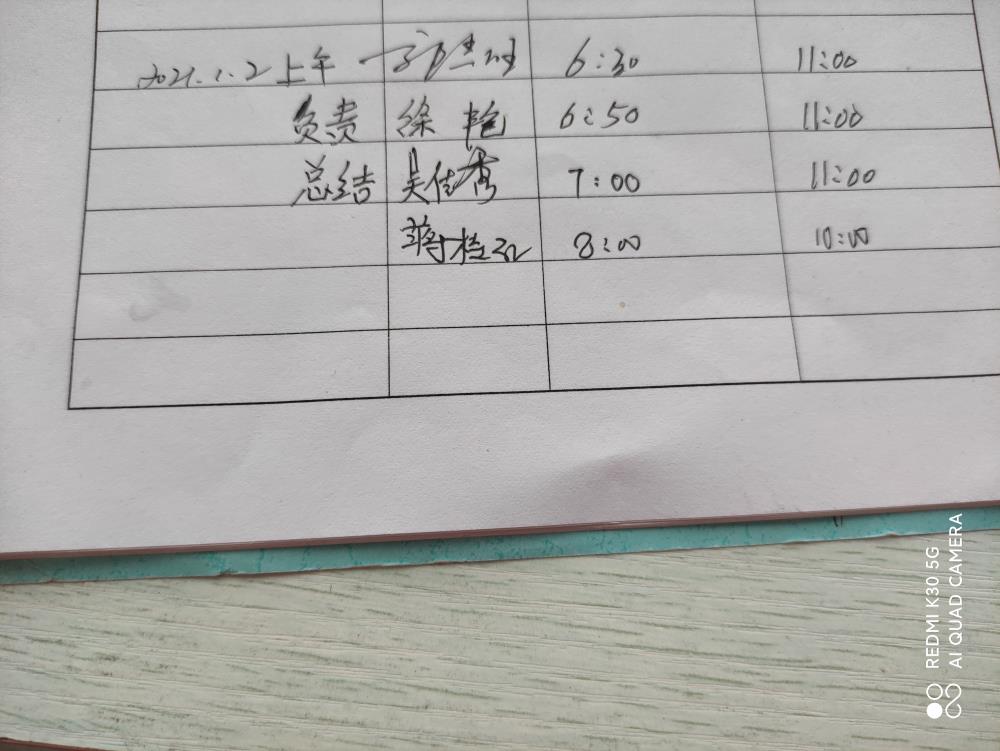 2021.1.2 上午 6:30 11:00
负责 徐艳 6:50 11:00
总结 吴佳秀 7:00 11:00
蒋桂红 8:00 10:00
REDMI K30 5G
AI QUAD CAMERA